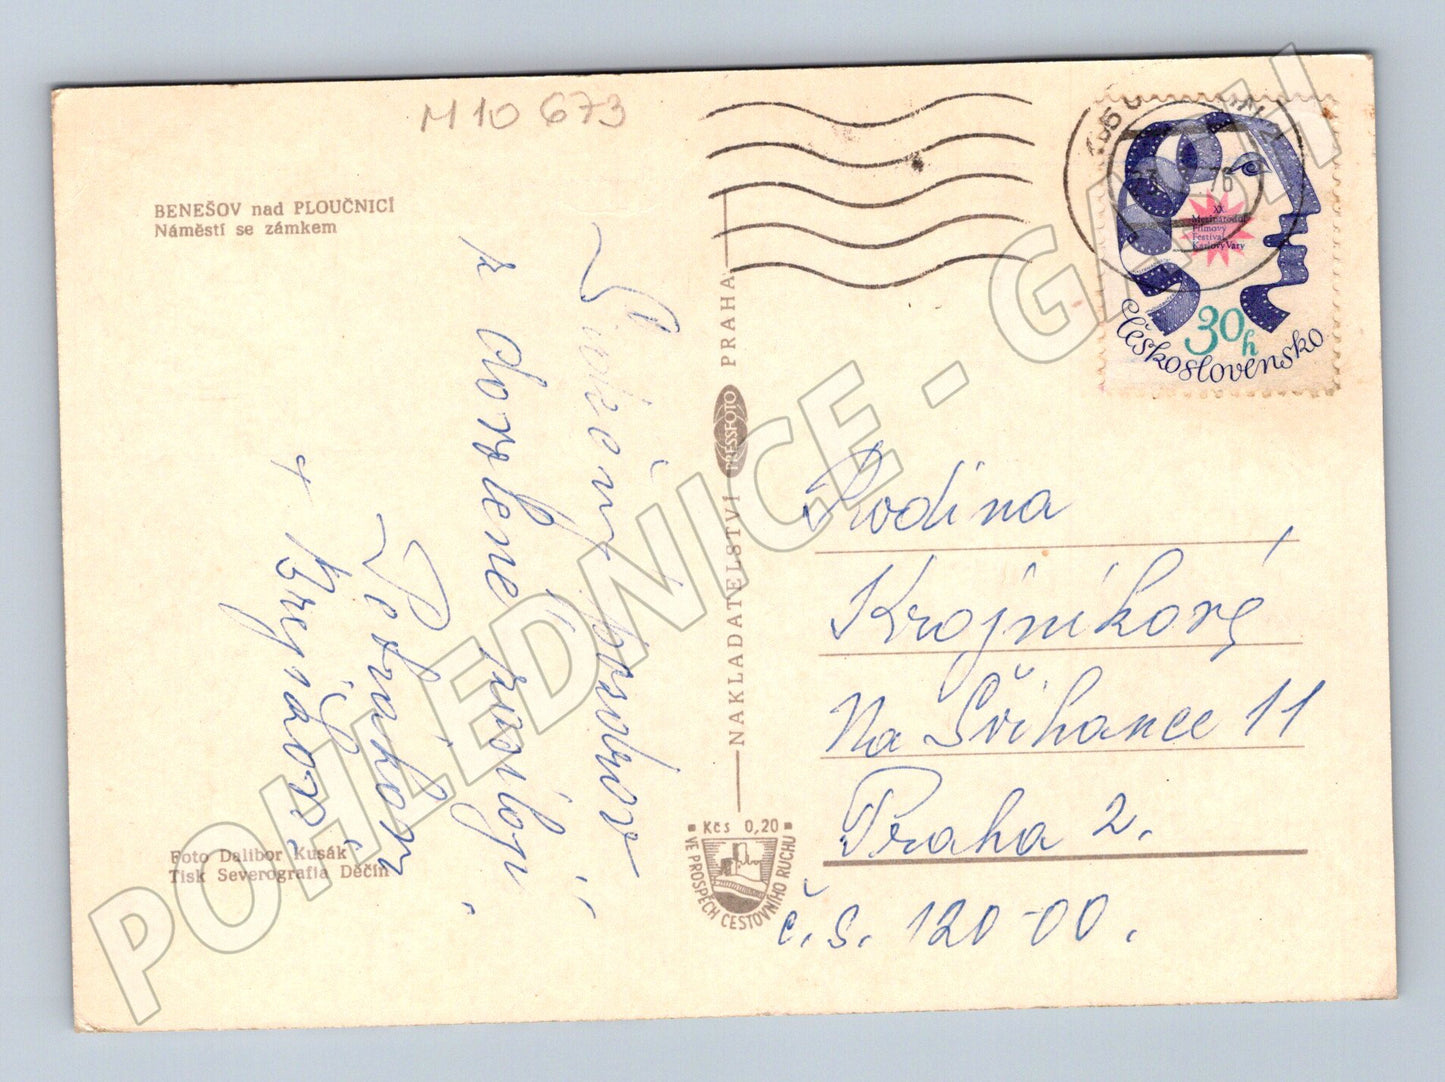 M 10 673
BENEŠOV nad PLOUČNICÍ
Náměstí se zámkem
Srdečný pozdrav
z dovolené
+
Foto Dalibor Kusák
Tisk Severografia Děčín
NAKLADATELSTVÍ PRESSFOTO PRAHA
Kčs 0,20
VE PROSPĚCH CESTOVNÍHO RUCHU
76
XX.
Mezinárodní
Filmový
Festival
Karlovy Vary
30h
Československo
Rodina
Krojníková
Na Švihance 11
Praha 2.
č.s. 120-00.
POHLEDNICE - GASH